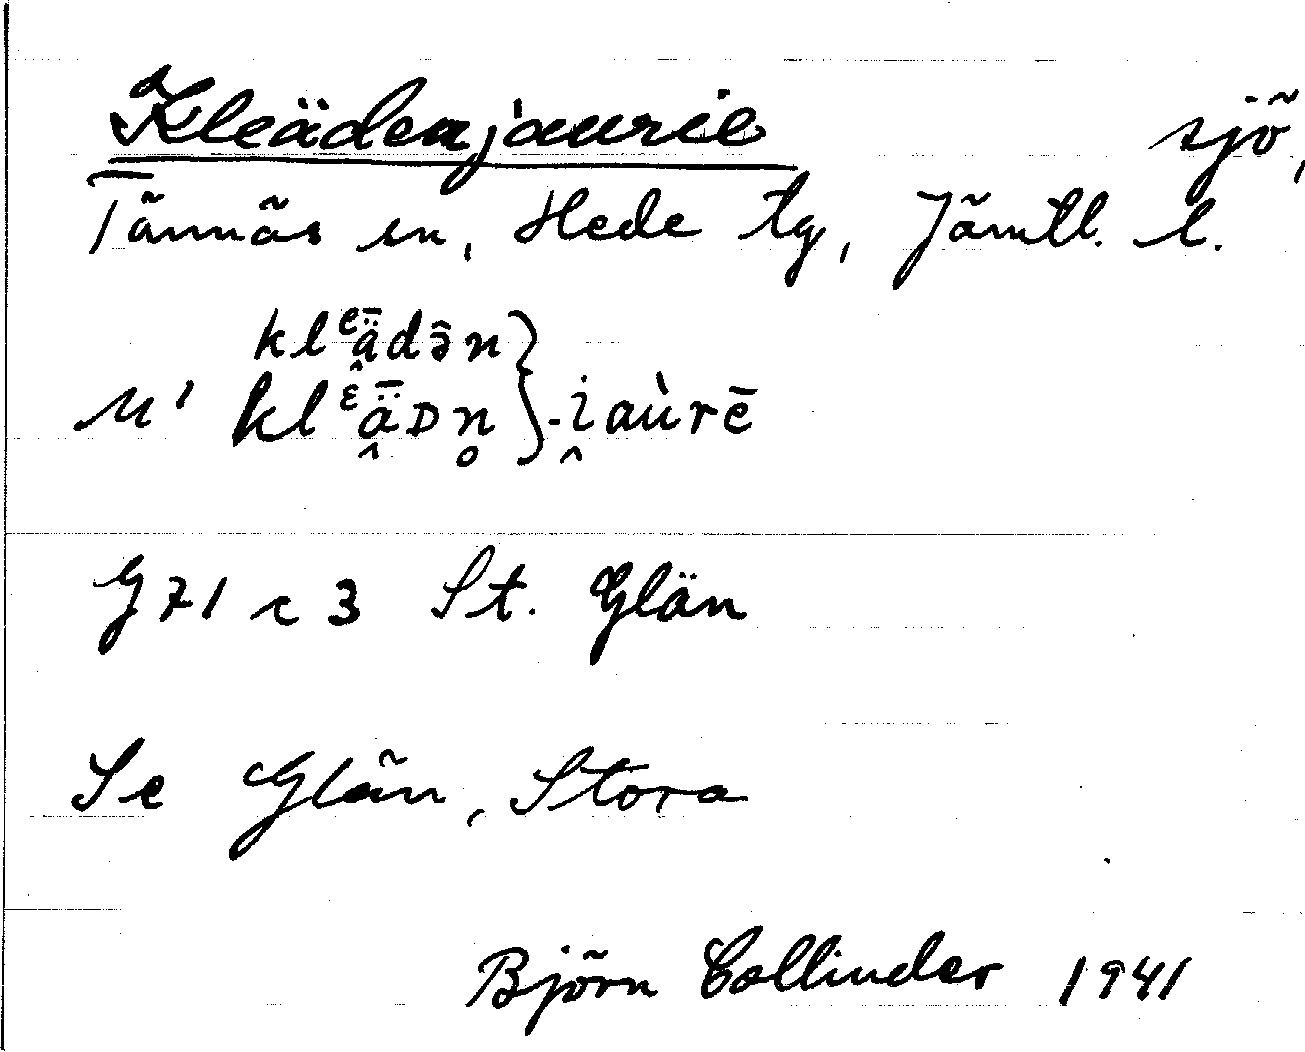 Kleädenjaurie sjö,
Tännäs sn, Hede tg, Jämtl. l.
klᵉǟ̯də̂n}
U' klᵋǟ̯Dn̥}-i̯aùrē
G 71 c 3 St. Glän
Se Glän, Stora
Björn Collinder 1941